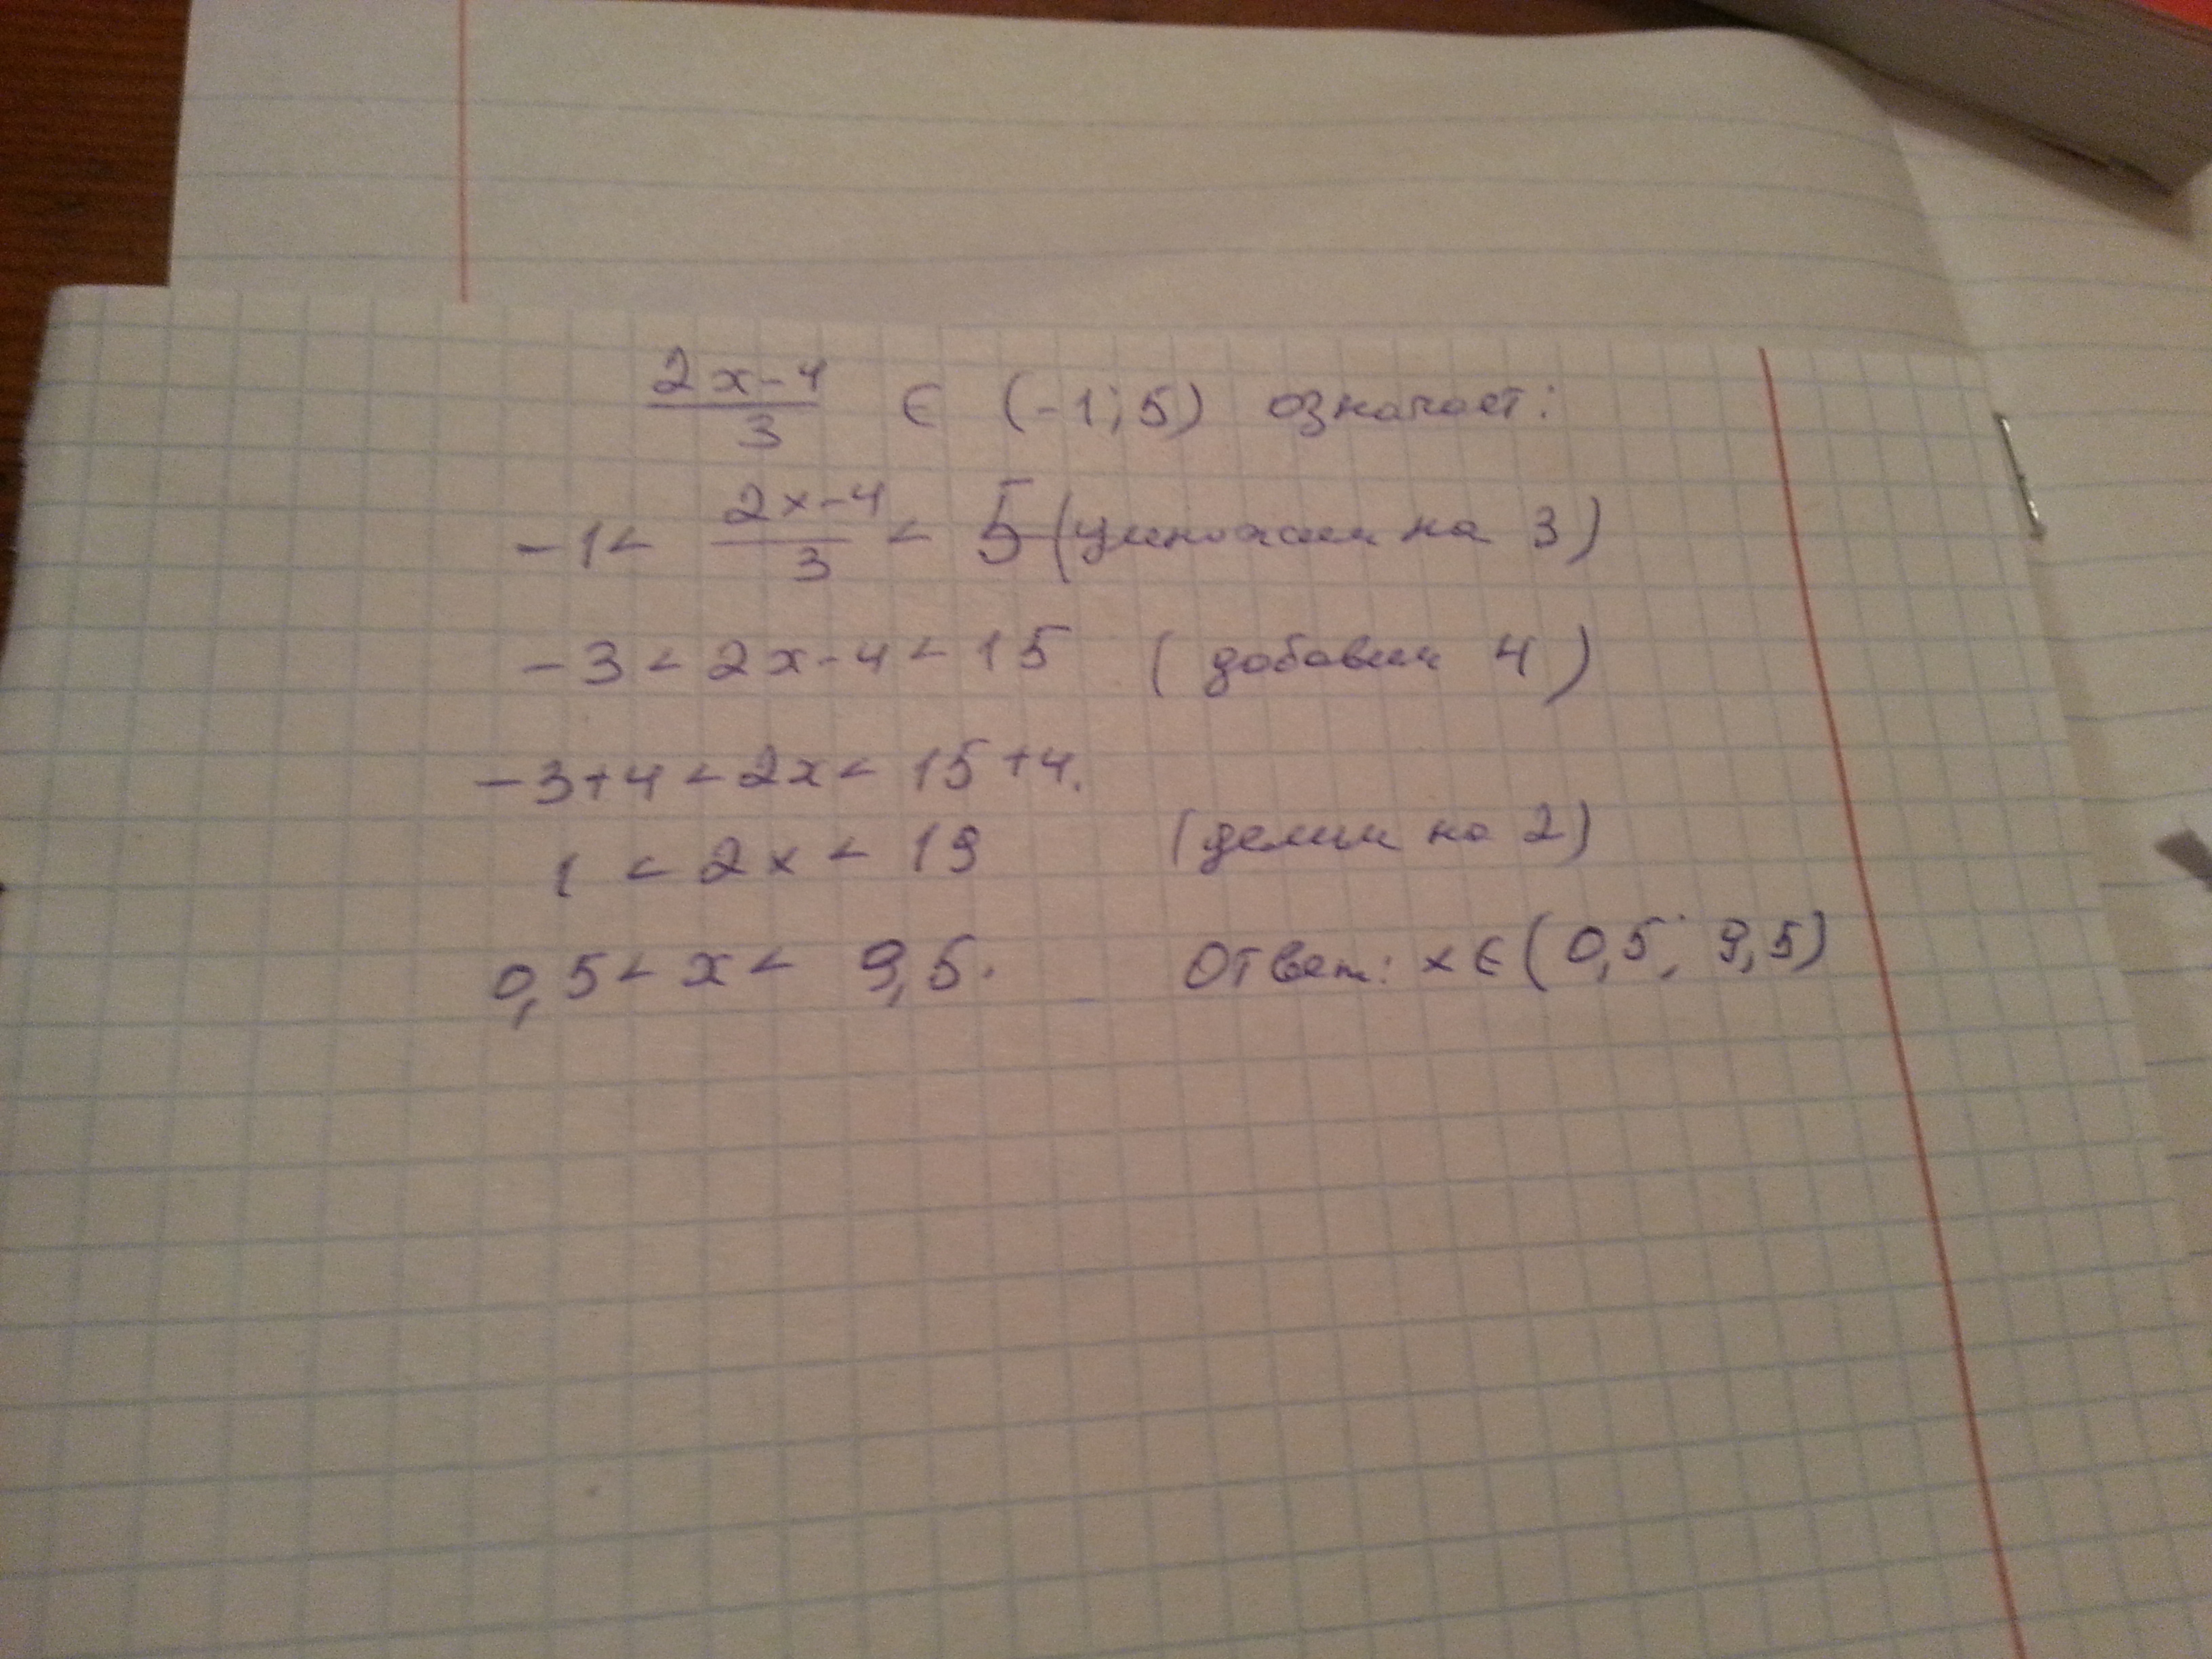 (2x-4)/3 ∈ (-1;5) означает:
-1 < (2x-4)/3 < 5 (умножаем на 3)
-3 < 2x-4 < 15 (добавим 4)
-3+4 < 2x < 15+4.
1 < 2x < 19 (делим на 2)
0,5 < x < 9,5. Ответ: x ∈ (0,5; 9,5)